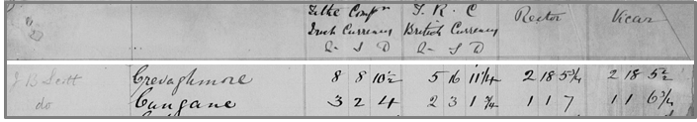 Tithe Compn T. R. C Rector Vicar
Irish Currency British Currency
£ S D £ S D
J B Scott Crevaghmore 8 8 10½ 5 16 11¼ 2 18 5¾ 2 18 5½
do Cungane 3 2 4 2 3 1¾ 1 1 7 1 1 6¾